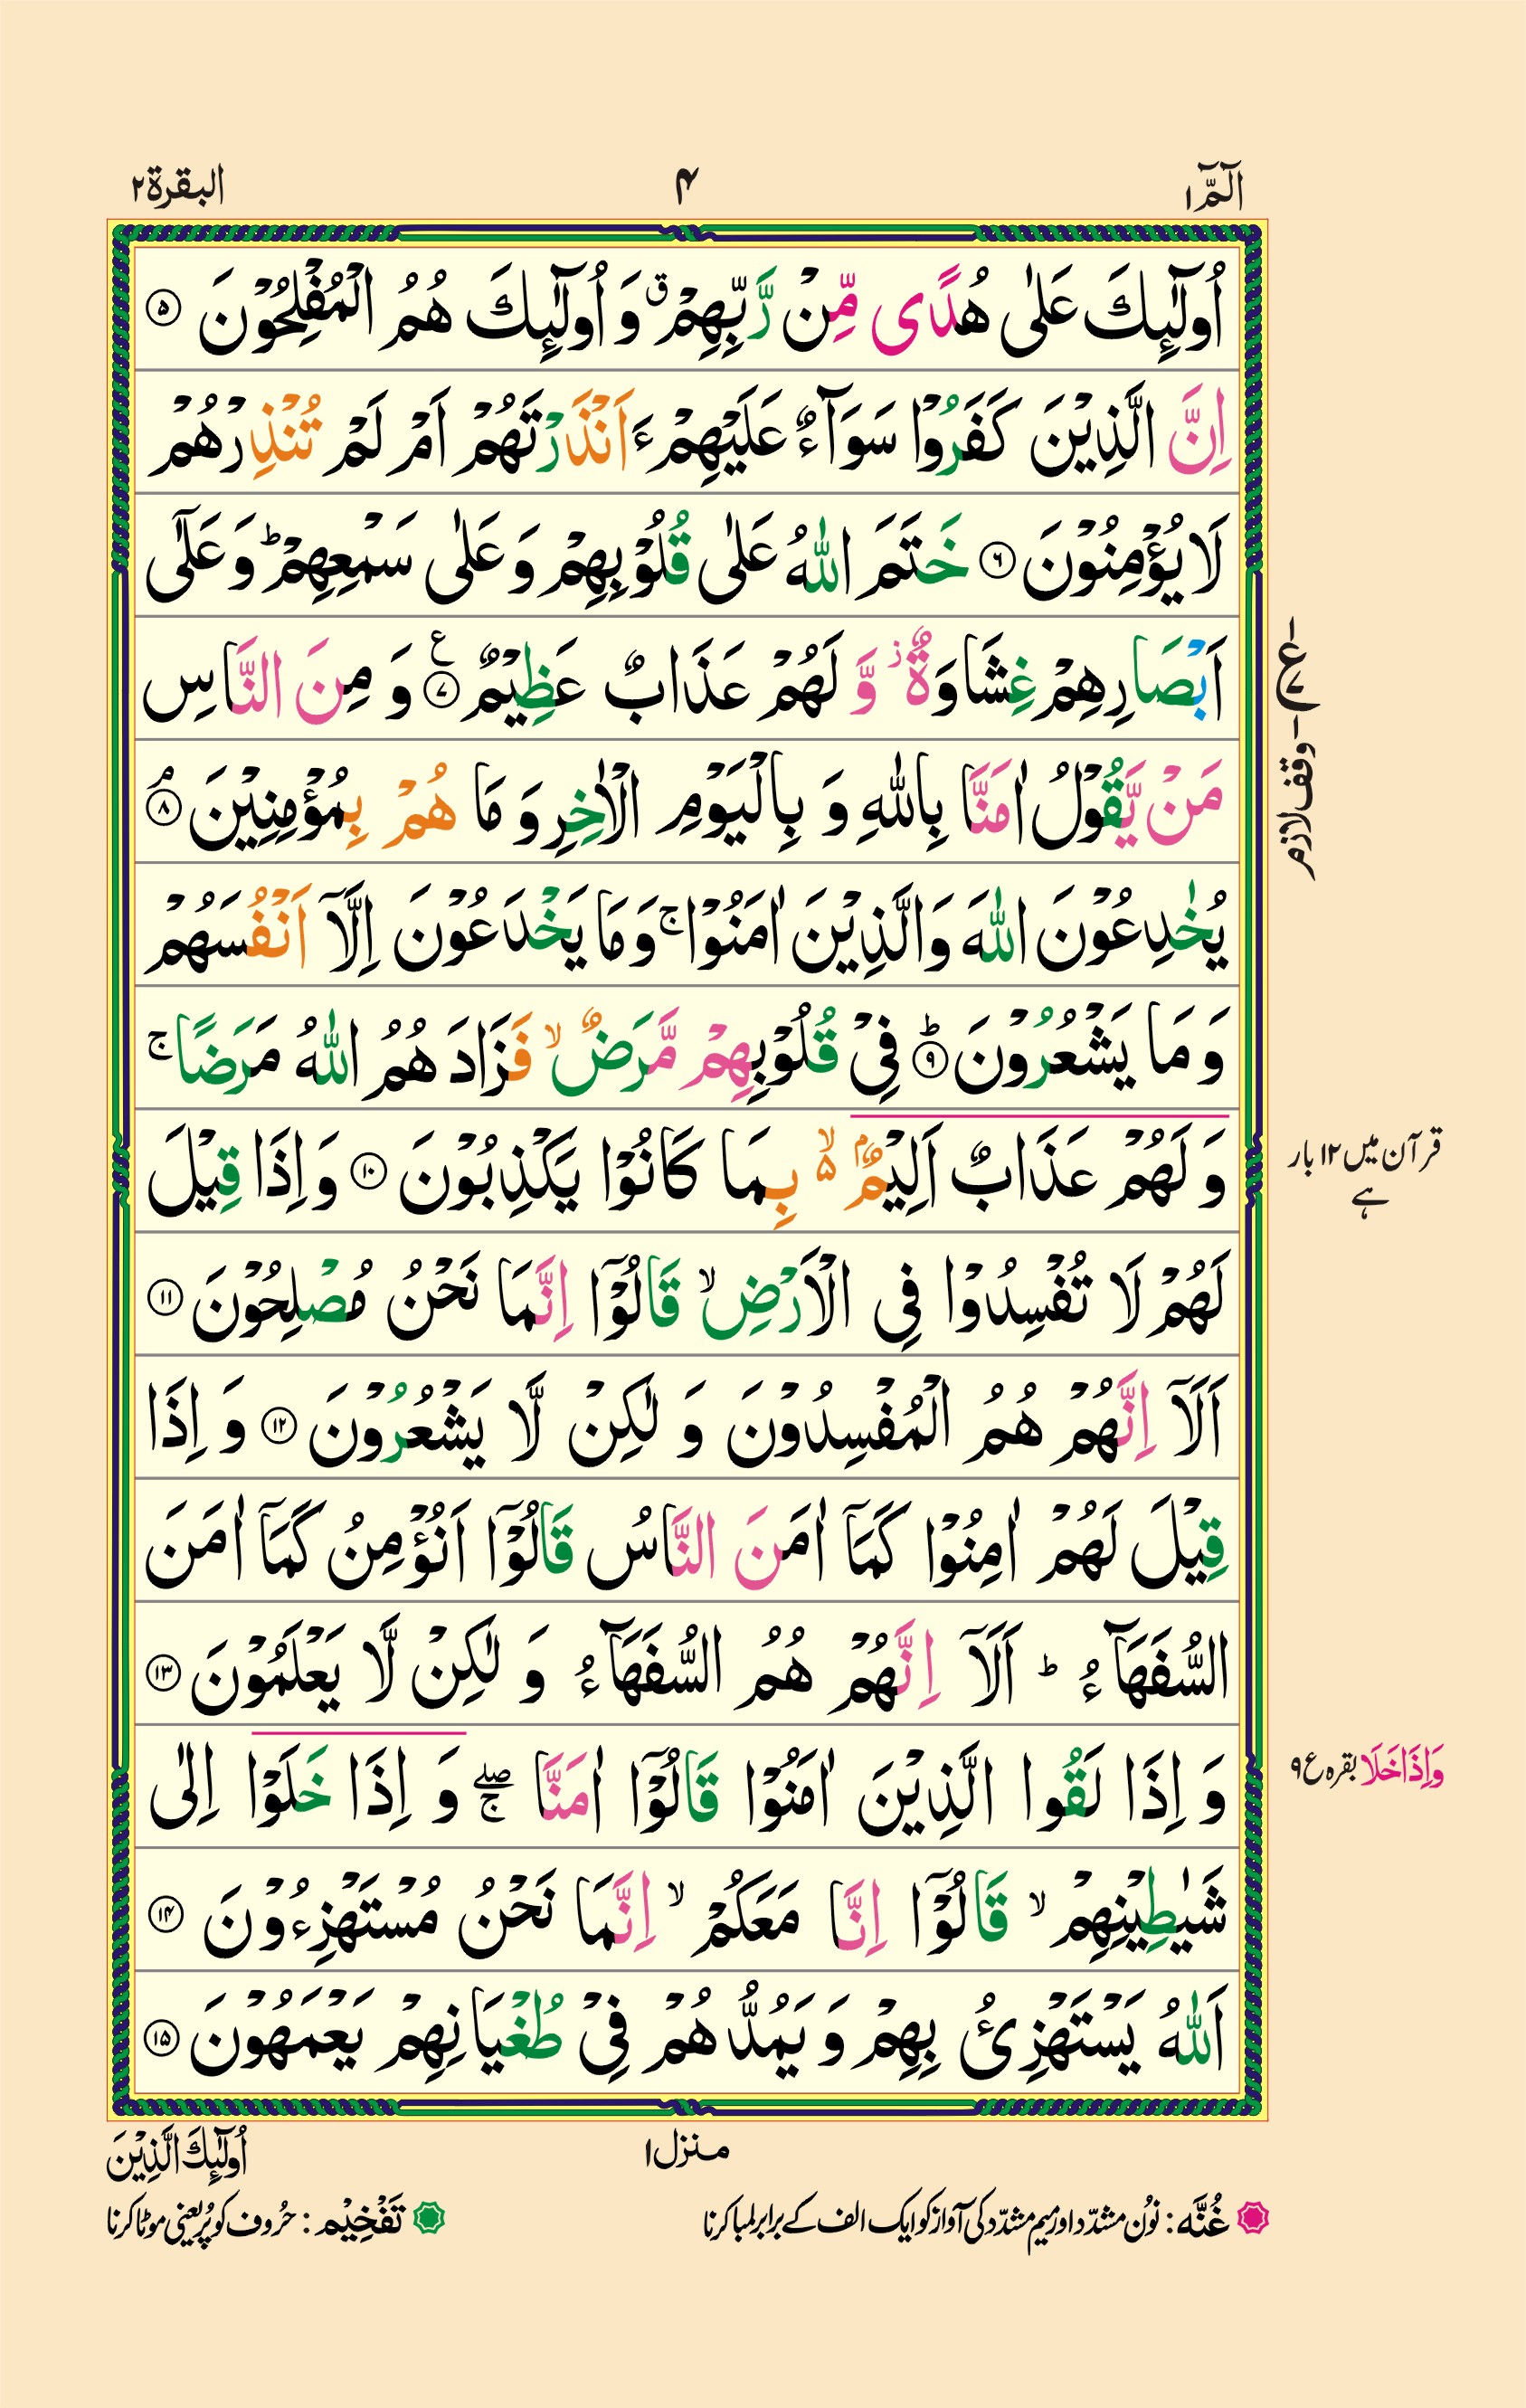 الٓمّٓ ١
۴
البقرة ٢
اُولٰٓئِكَ عَلٰى هُدًى مِّنْ رَّبِّهِمْ ۗ وَ اُولٰٓئِكَ هُمُ الْمُفْلِحُوْنَ ۝۵
اِنَّ الَّذِيْنَ كَفَرُوْا سَوَآءٌ عَلَيْهِمْ ءَاَنْذَرْتَهُمْ اَمْ لَمْ تُنْذِرْهُمْ
لَا يُؤْمِنُوْنَ ۝۶ خَتَمَ اللّٰهُ عَلٰى قُلُوْبِهِمْ وَ عَلٰى سَمْعِهِمْ ؕ وَ عَلٰٓى
اَبْصَارِهِمْ غِشَاوَةٌ ز وَّ لَهُمْ عَذَابٌ عَظِيْمٌ ۝۷ ع وَ مِنَ النَّاسِ
مَنْ يَّقُوْلُ اٰمَنَّا بِاللّٰهِ وَ بِالْيَوْمِ الْاٰخِرِ وَ مَا هُمْ بِمُؤْمِنِيْنَ ۝۸ۘ
يُخٰدِعُوْنَ اللّٰهَ وَالَّذِيْنَ اٰمَنُوْا ۚ وَ مَا يَخْدَعُوْنَ اِلَّاۤ اَنْفُسَهُمْ
وَ مَا يَشْعُرُوْنَ ۝۹ؕ فِىْ قُلُوْبِهِمْ مَّرَضٌ ۙ فَزَادَهُمُ اللّٰهُ مَرَضًا ۚ
وَ لَهُمْ عَذَابٌ اَلِيْمٌ ۢ ۙ۵ بِمَا كَانُوْا يَكْذِبُوْنَ ۝۱۰ وَ اِذَا قِيْلَ
لَهُمْ لَا تُفْسِدُوْا فِى الْاَرْضِ ۙ قَالُوْۤا اِنَّمَا نَحْنُ مُصْلِحُوْنَ ۝۱۱
اَلَاۤ اِنَّهُمْ هُمُ الْمُفْسِدُوْنَ وَ لٰكِنْ لَّا يَشْعُرُوْنَ ۝۱۲ وَ اِذَا
قِيْلَ لَهُمْ اٰمِنُوْا كَمَاۤ اٰمَنَ النَّاسُ قَالُوْۤا اَنُؤْمِنُ كَمَاۤ اٰمَنَ
السُّفَهَآءُ ؕ اَلَاۤ اِنَّهُمْ هُمُ السُّفَهَآءُ وَ لٰكِنْ لَّا يَعْلَمُوْنَ ۝۱۳
وَ اِذَا لَقُوا الَّذِيْنَ اٰمَنُوْا قَالُوْۤا اٰمَنَّا ۖۚ وَ اِذَا خَلَوْا اِلٰى
شَيٰطِيْنِهِمْ ۙ قَالُوْۤا اِنَّا مَعَكُمْ ۙ اِنَّمَا نَحْنُ مُسْتَهْزِءُوْنَ ۝۱۴
اَللّٰهُ يَسْتَهْزِئُ بِهِمْ وَ يَمُدُّهُمْ فِىْ طُغْيَانِهِمْ يَعْمَهُوْنَ ۝۱۵
وقف لازم
قرآن میں ۱۲ بار
ہے
وَاِذَا خَلَا بقرہ ع ۹
منزل ۱
اُولٰٓئِكَ الَّذِيْنَ
غُنَّه: نوُن مشدّد اور میم مشدّد کی آواز کو ایک الف کے برابر لمبا کرنا
تَفْخِيْم: حرُوف کو پُر یعنی موٹا کرنا